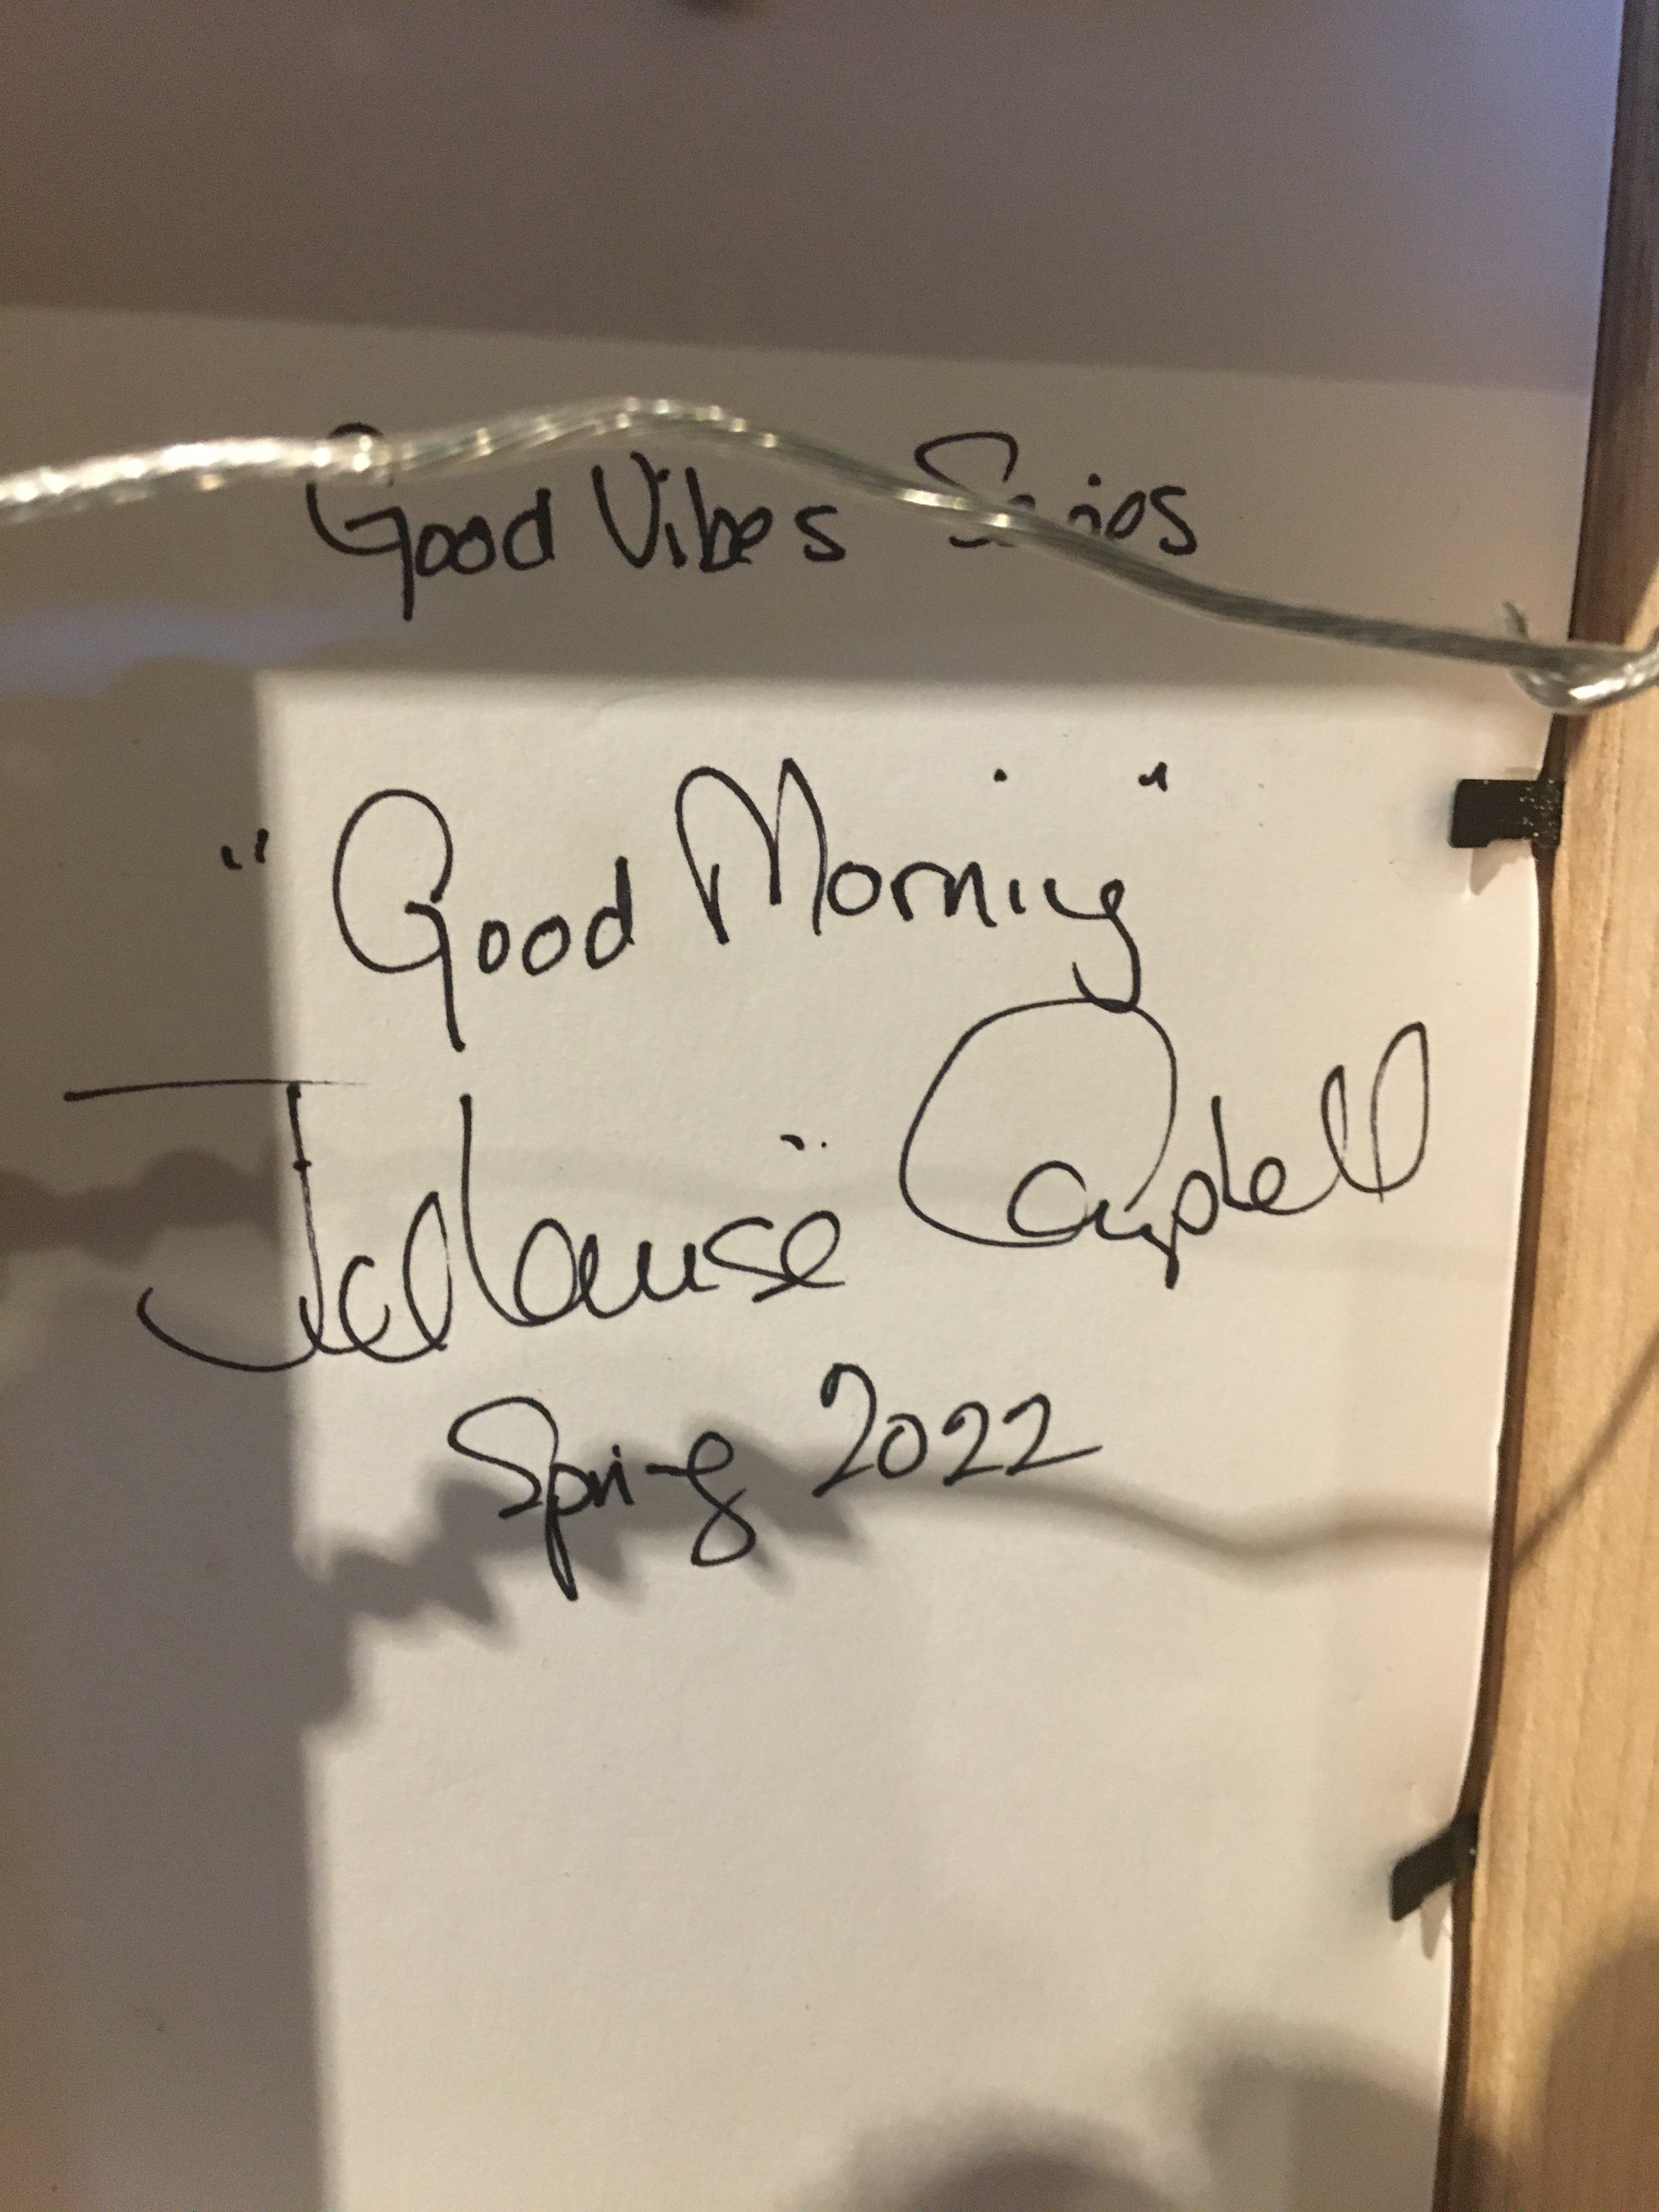 Good Vibes Series
"Good Morning"
Campbell
Spring 2022